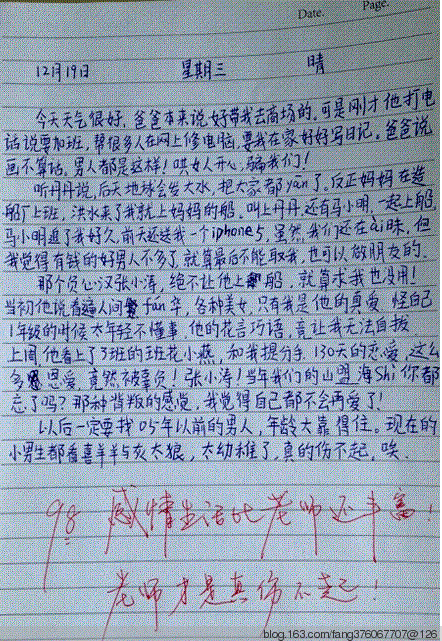 Date.
Page.
12月19日 星期三 晴
今天天气很好，爸爸本来说好带我去商场的，可是刚才他打电
话说要加班，帮很多人在网上修电脑，要我在家好好写日记。爸爸说
画不算话，男人都是这样！哄女人开心，骗我们！
听丹丹说，后天地球会发大水，把大家都yān了，反正妈妈在造
船厂上班，洪水来了我就上妈妈的船。叫上丹丹，还有马小明，一起上船，
马小明追了我好久，前天还送我一个iphone5，虽然我们还在ài昧，但
我觉得有钱的好男人不多了，就算最后不能取我，也可以做朋友的。
那个负心汉张小涛，绝不让他上船，就算求我也没用！
当初他说看遍人间fán华，各种美女，只有我是他的真爱，怪自己
1年级的时候太年轻不懂事，他的花言巧语，竟让我无法自拔
上周他看上了3班的班花小燕，和我提分手，130天的恋爱，这么
多恩爱，竟然被辜负！张小涛！当年我们的山盟海Shi你都
忘了吗？那种背叛的感觉，我觉得自己都不会再爱了！
以后一定要找05年以前的男人，年龄大靠得住。现在的
小男生都看喜羊羊与灰太狼，太幼稚了，真的伤不起，唉．
98 感情生活比老师还丰富！
老师才是真伤不起！
blog.163.com/fang376067707@126